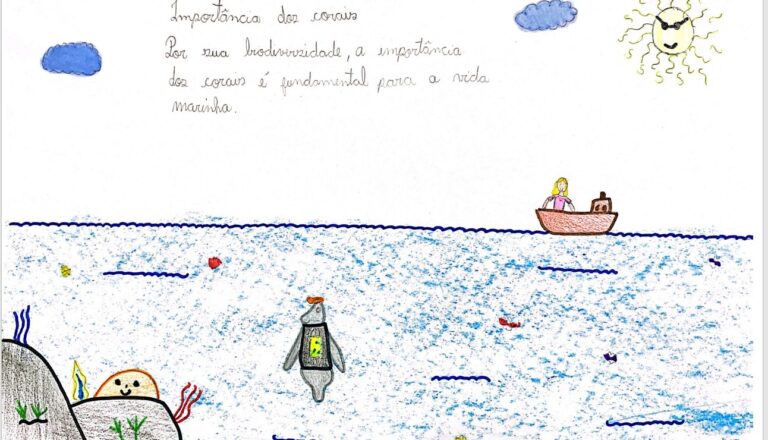 Importância dos corais
Por sua biodiversidade, a importância
dos corais é fundamental para a vida
marinha.